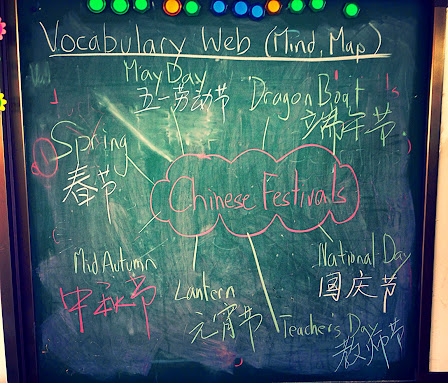 Vocabulary Web (Mind Map)
May Day
五一劳动节
Dragon Boat
端午节
Spring
春节
Chinese Festivals
Mid Autumn
中秋节
Lantern
元宵节
National Day
国庆节
Teacher's Day
教师节